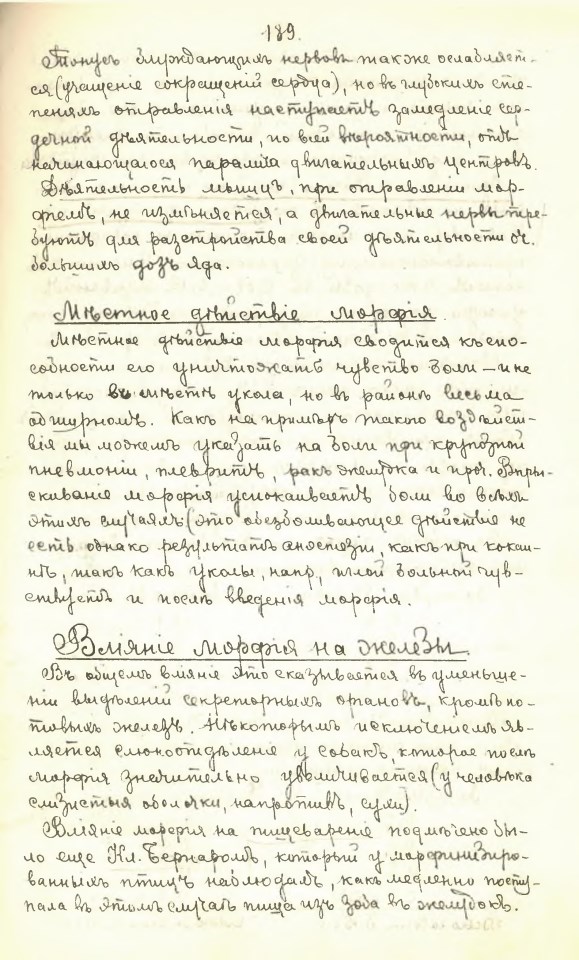 189.
Тонусъ блуждающихъ нервовъ также ослабляет-
ся (учащеніе сокращеній сердца), но въ глубокихъ сте-
пеняхъ отравленія наступаетъ замедленіе сер-
дечной дѣятельности, по всей вѣроятности, отъ
начинающагося паралича двигательныхъ центровъ.
Дѣятельность мышцъ, при отравленіи мор-
фіемъ, не измѣняется, а двигательные нервы тре-
буютъ для разстройства своей дѣятельности оч.
большихъ дозъ яда.
Мѣстное дѣйствіе морфія.
Мѣстное дѣйствіе морфія сводится къ спо-
собности его уничтожать чувство боли — и не
только въ мѣстѣ укола, но въ районѣ весьма
обширномъ. Какъ на примѣръ такого воздѣйст-
вія мы можемъ указать на боли при крупозной
пневмоніи, плевритѣ, ракѣ желудка и проч. Впры-
скиваніе морфія успокаиваетъ боли во всѣхъ
этихъ случаяхъ (это обезболивающее дѣйствіе не
есть однако результатъ анэстезіи, какъ при кокаи-
нѣ, такъ какъ уколы, напр, иглой больной чув-
ствуетъ и послѣ введенія морфія.
Вліяніе морфія на железы.
Въ общемъ вліяніе это сказывается въ уменьше-
ніи выдѣленій секреторныхъ органовъ, кромѣ по-
товыхъ железъ. Нѣкоторымъ исключеніемъ яв-
ляется слюноотдѣленіе у собакъ, которое послѣ
морфія значительно увеличивается (у человѣка
слизистыя оболочки, напротивъ, сухи).
Вліяніе морфія на пищевареніе подмѣчено бы-
ло еще Кл. Бернаромъ, который у морфинизиро-
ванныхъ птицъ наблюдалъ, какъ медленно посту-
пала въ этомъ случаѣ пища изъ зоба въ желудокъ.